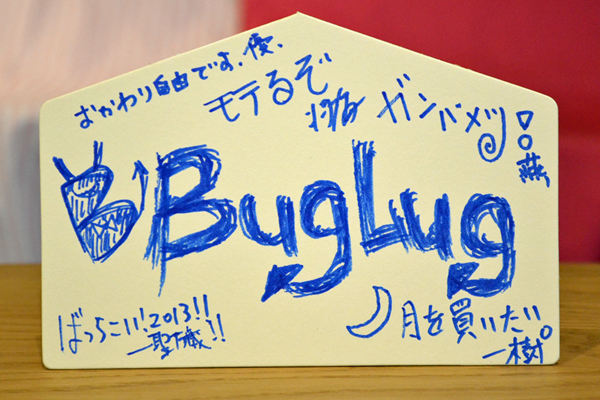 おかわり自由です。優、
モテるぞ
ガンバメツ!!
燕
BugLug
ばっちこい!2013!!
一聖
月を買いたい
一樹。